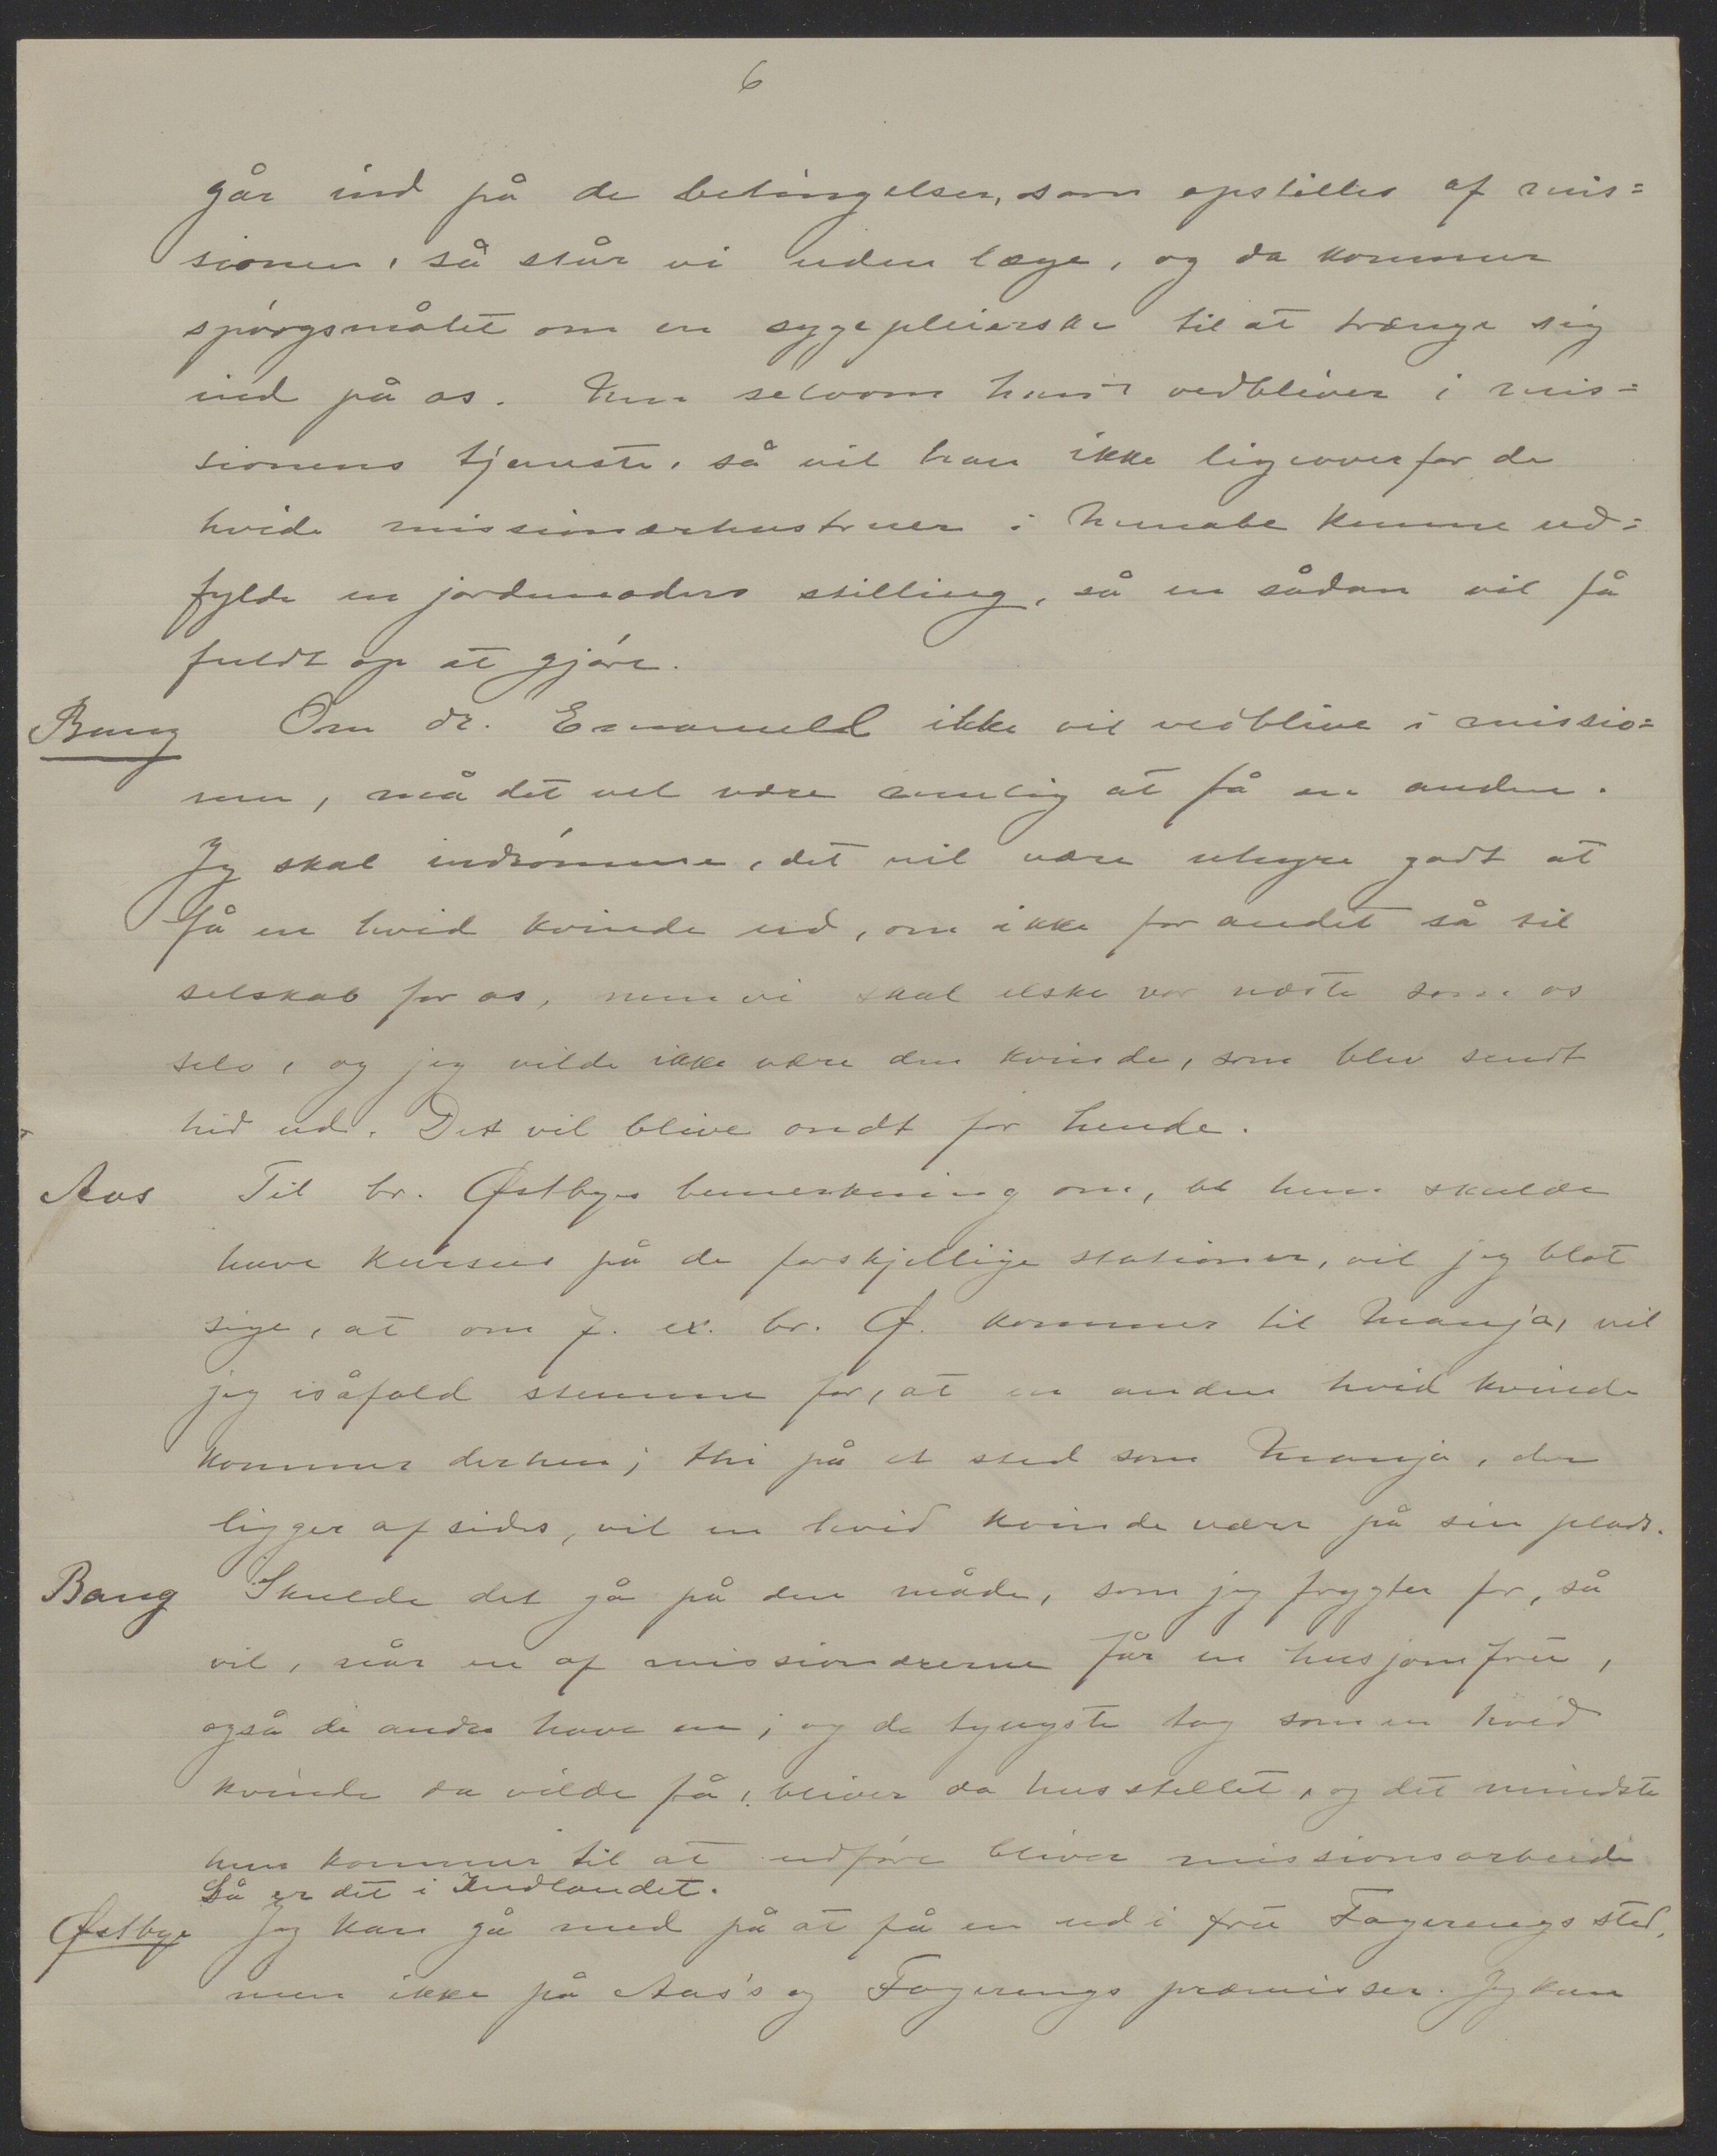 6
går ind på de betingelser, som opstilles af mis=
sionen, så står vi uden læge, og da kommer
spörgsmålet om en sygepleierske til at trænge sig
ind på os. Men selvom han vedbliver i mis=
sionens tjeneste, så vil han ikke ligeoverfor de
hvide missionærhustruer i kunne ud=
fylde en jordemoders stilling, så en sådan vil få
fuldt op at gjöre.
Bang Om dr. Emanuel ikke vil vedblive i missio=
nen, må det vel være rimelig at få en anden.
Jeg skal indrömme, det vil være uhyre godt at
få en hvid kvinde ud, om ikke for andet så til
selskab for os, men vi skal elske vor næste som os
selv, og jeg vilde ikke være den kvinde, som blev sendt
hid ud. Det vil blive ondt for hende.
Aas Til br. Østbyes bemerkning om, at hun skulde
have kursus på de forskjellige stationer, vil jeg blot
sige, at om f. ex. br. Ø. kommer til Manja, vil
jeg isåfald stemme for, at en anden hvid kvinde
kommer derhen; thi på et sted som Manja, der
ligger afsides, vil en hvid kvinde være på sin plads.
Bang Skulde det gå på den måde, som jeg frygter for, så
vil, når en af missionærerne får en husjomfru,
også de andre have en; og de tyngste tag som en hvid
kvinde da vilde få, bliver da husstellet, og det mindste
hun kommer til at udföre bliver missionsarbeide
Så er det i Indlandet.
Østbye Jeg kan gå med på at få en ud i fru Fagerengs sted,
men ikke på Aas's og Fagerengs præmisser. Jeg kan